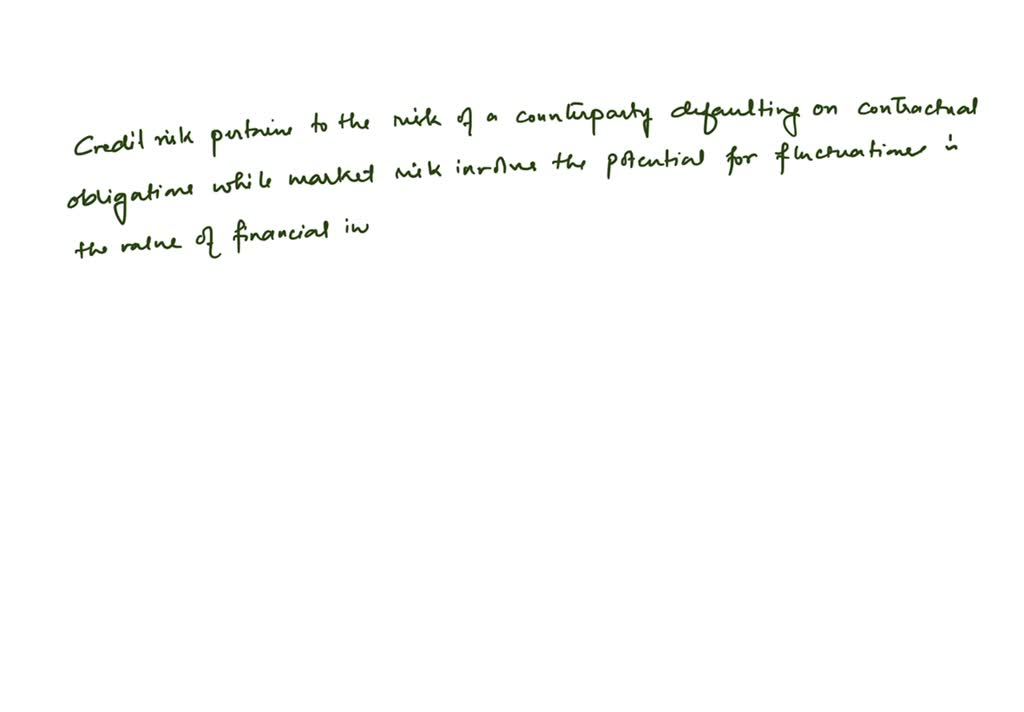 Credit risk pertains to the risk of a counterparty defaulting on contractual
obligations while market risk involves the potential for fluctuations in
the value of financial in